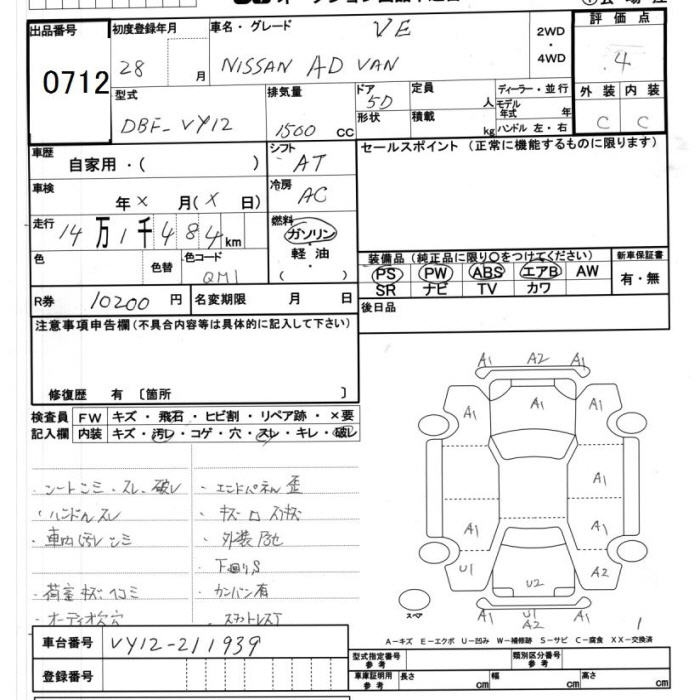 出品番号
初度登録年月
車名・グレード
VE
2WD・4WD
評価点
0712
28 月
NISSAN AD VAN
4
型式
DBF-VY12
排気量
1500 CC
ドア
5D
形状
定員
人
積載
kg
ディーラー・並行
モデル年式
年
ハンドル 左・右
外装
内装
C
C
車歴
自家用・( )
シフト
AT
セールスポイント (正常に機能するものに限ります)
車検
年 X 月( X 日)
冷房
AC
走行
14万1千484km
燃料
ガソリン・軽油・( )
色
色替
色コード
QM1
装備品(純正品に限り○をつけてください)
新車保証書
PS PW ABS エアB AW
有・無
SR ナビ TV カワ
R券
10200円
名変期限 月 日
後日品
注意事項申告欄(不具合内容等は具体的に記入して下さい)
修復歴 有 〔箇所 〕
検査員記入欄
FW キズ・飛石・ヒビ割・リペア跡・×要
内装 キズ・汚レ・コゲ・穴・スレ・キレ・破レ
・シートシミ・スレ、破レ
・ハンドルスレ
・車内汚レシミ
・荷室キズヘコミ
・オーディオ欠穴
・エンドパネル歪
・外装
・下廻りS
・カンバン有
A1 A2 A1
A1 A1 A1
A1
A1 A1
U1 U2 A2
U1
A1 A2
スペア
1
A-キズ E-エクボ U-凹み W-補修跡 S-サビ C-腐食 XX-交換済
車台番号
VY12-211939
登録番号
型式指定番号 参考
類別区分番号 参考
車庫証明用 参考
長さ cm
幅 cm
高さ cm